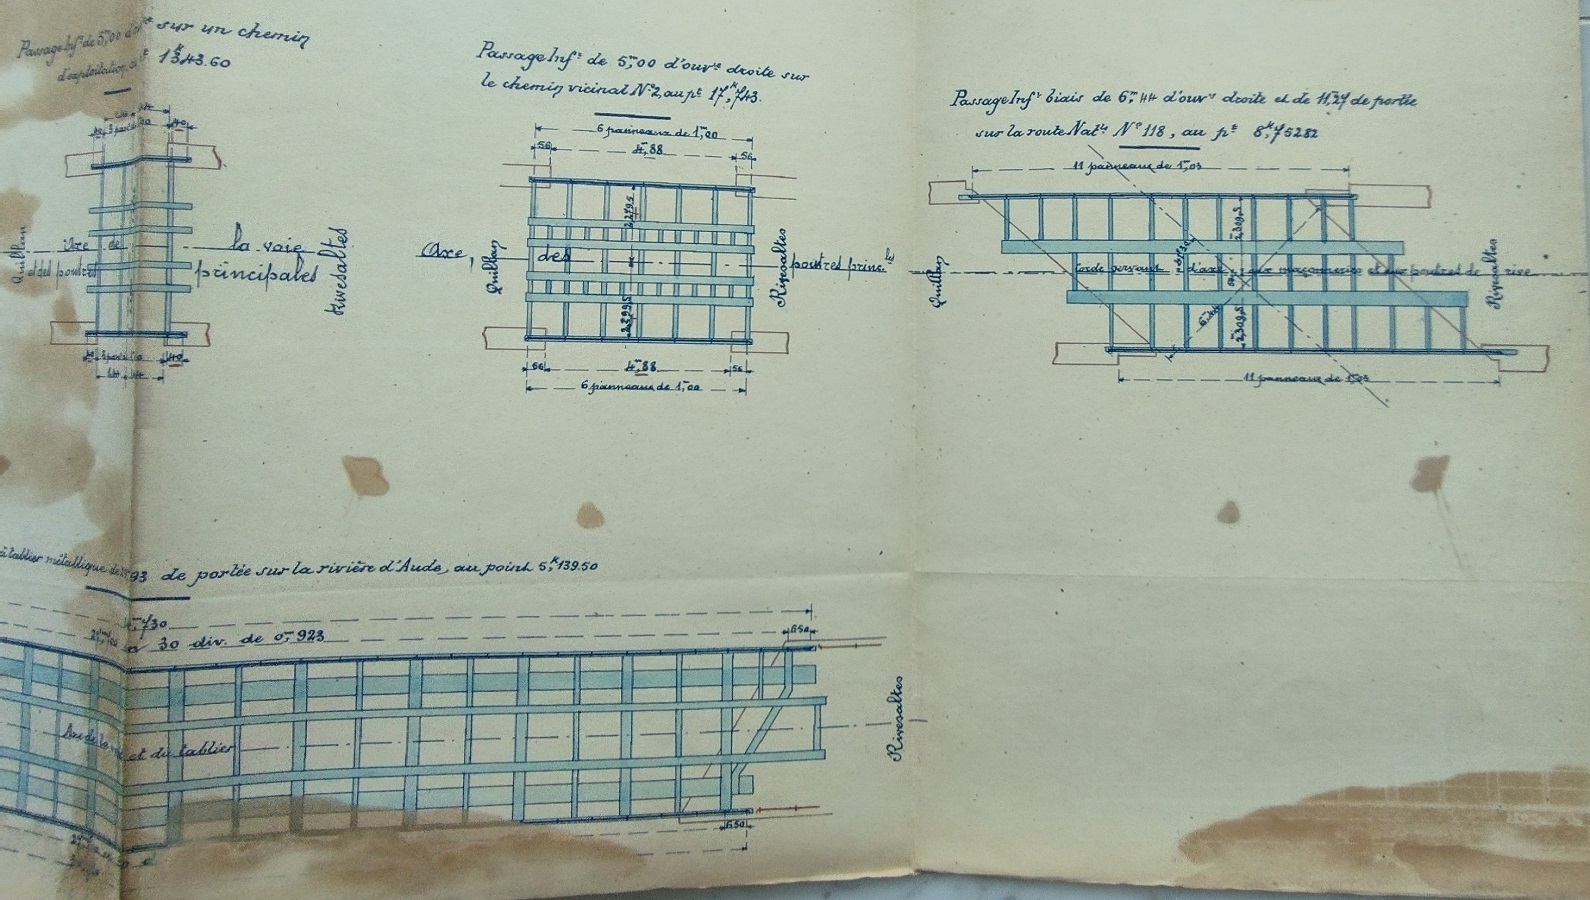 Passage Infr de 5,m00 d'ouvre sur un chemin
d'exploitation, au pt 1K343.60
6 panneaux de 1,m00
56 4,m88 56
Axe de la voie
et des poutres principales
Quillan
Rivesaltes
40
Passage Infr de 5,m00 d'ouvre droite sur
le chemin vicinal No2, au pt 17,K743.
2m219,5
Quillan
Axe, des poutres princles
Rivesaltes
56 4,m88 56
6 panneaux de 1,m00
Passage Infr biais de 6,m44 d'ouvre droite et de 11,m27 de portée
sur la route Natle No 118, au pt 8,K75282
11 panneaux de 1,m03
2m309,5
Quillan
Corde servant d'axe aux maçonneries et aux poutres de rive
Rivesaltes
6m44
2m309,5
11 panneaux de 1,m03
à tablier métallique de 93 de portée sur la rivière d'Aude, au point 5,K139.50
730
30 div. de 0,m923
650
Axe de la voie et du tablier
Rivesaltes
650